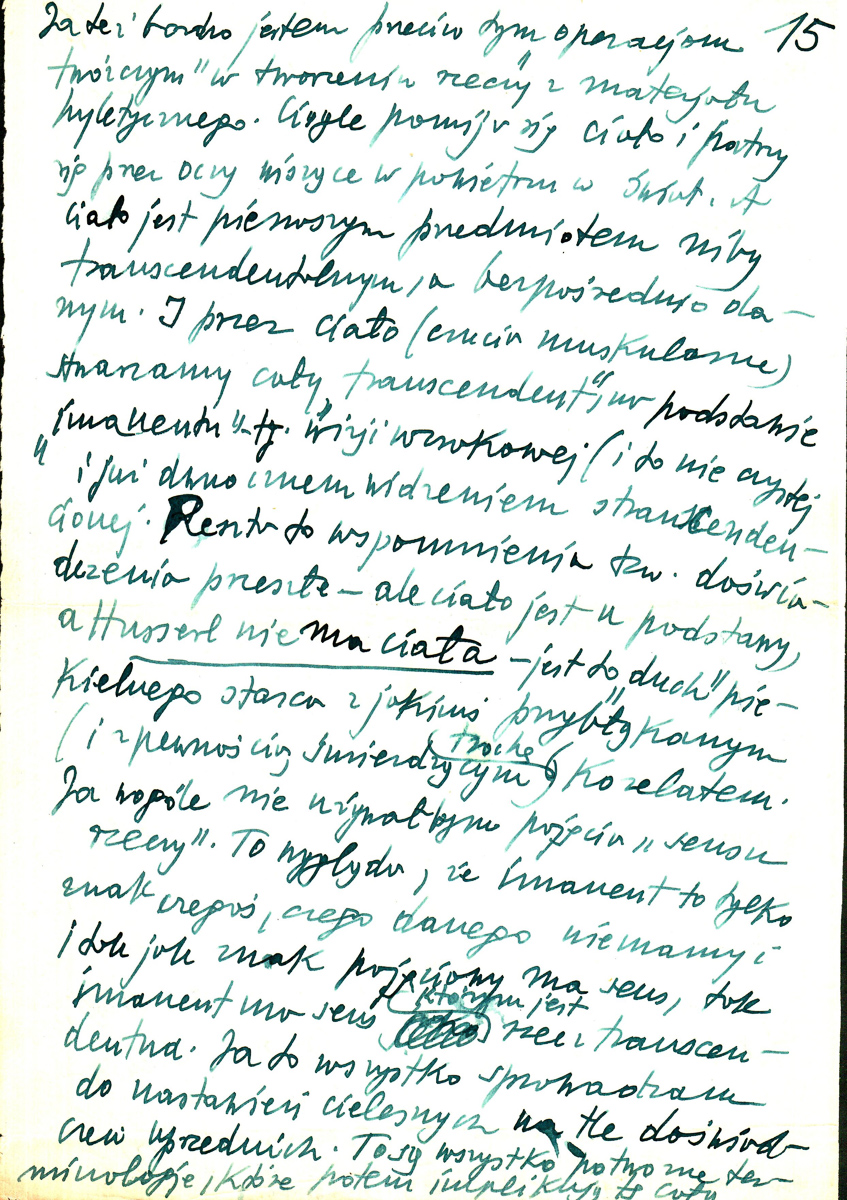 Ja też bardzo jestem przeciw tym operacjom 15
twórczym" w tworzeniu rzeczy z materjału
hyletycznego. Ciągle pomija się ciało i patrzy
się przez oczy wiszące w powietrzu w świat. A
ciało jest pierwszym przedmiotem niby
transcendentalnym, a bezpośrednio da-
nym. I przez ciało (czucia muskularne)
stwarzamy cały „transcendent", na podstawie
„imanentu" – tj. wizji wzrokowej (i to nie czystej
i już dwuocznem widzeniem stranscenden-
cionej. Reszta to wspomnienia tzw. doświa-
dczenia przeszłe – ale ciało jest u podstawy,
a Husserl nie ma ciała – jest to duch" pie-
kielnego starca z jakimś przybłąkanym
(i z pewnością śmierdzącym (trochę)) korelatem.
Ja wogóle nie używałbym pojęcia „sensu
rzeczy". To wygląda, że imanent to tylko
znak czegoś, czego danego nie mamy i
i tak jak znak pojęciowy ma sens, tak
imanent ma sens, którym jest rzecz transcen-
dentna. Ja to wszystko sprowadzam
do nastawień cielesnych na tle doświad-
czeń uprzednich. To są wszystko potworne ter-
minologje, które potem implikują tę całą